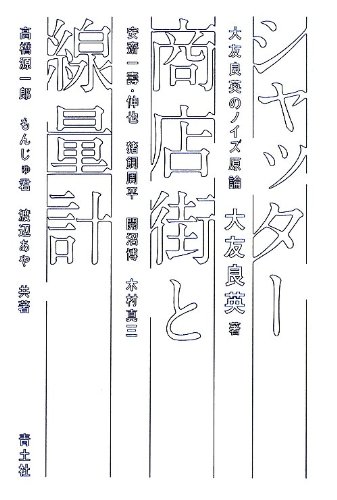 シャッター
大友良英のノイズ原論 大友良英 著
商店街と
安齋一壽・伸也 猪飼周平 開沼博 木村真三
線量計
高橋源一郎 もんじゅ君 渡辺あや 共著
青土社